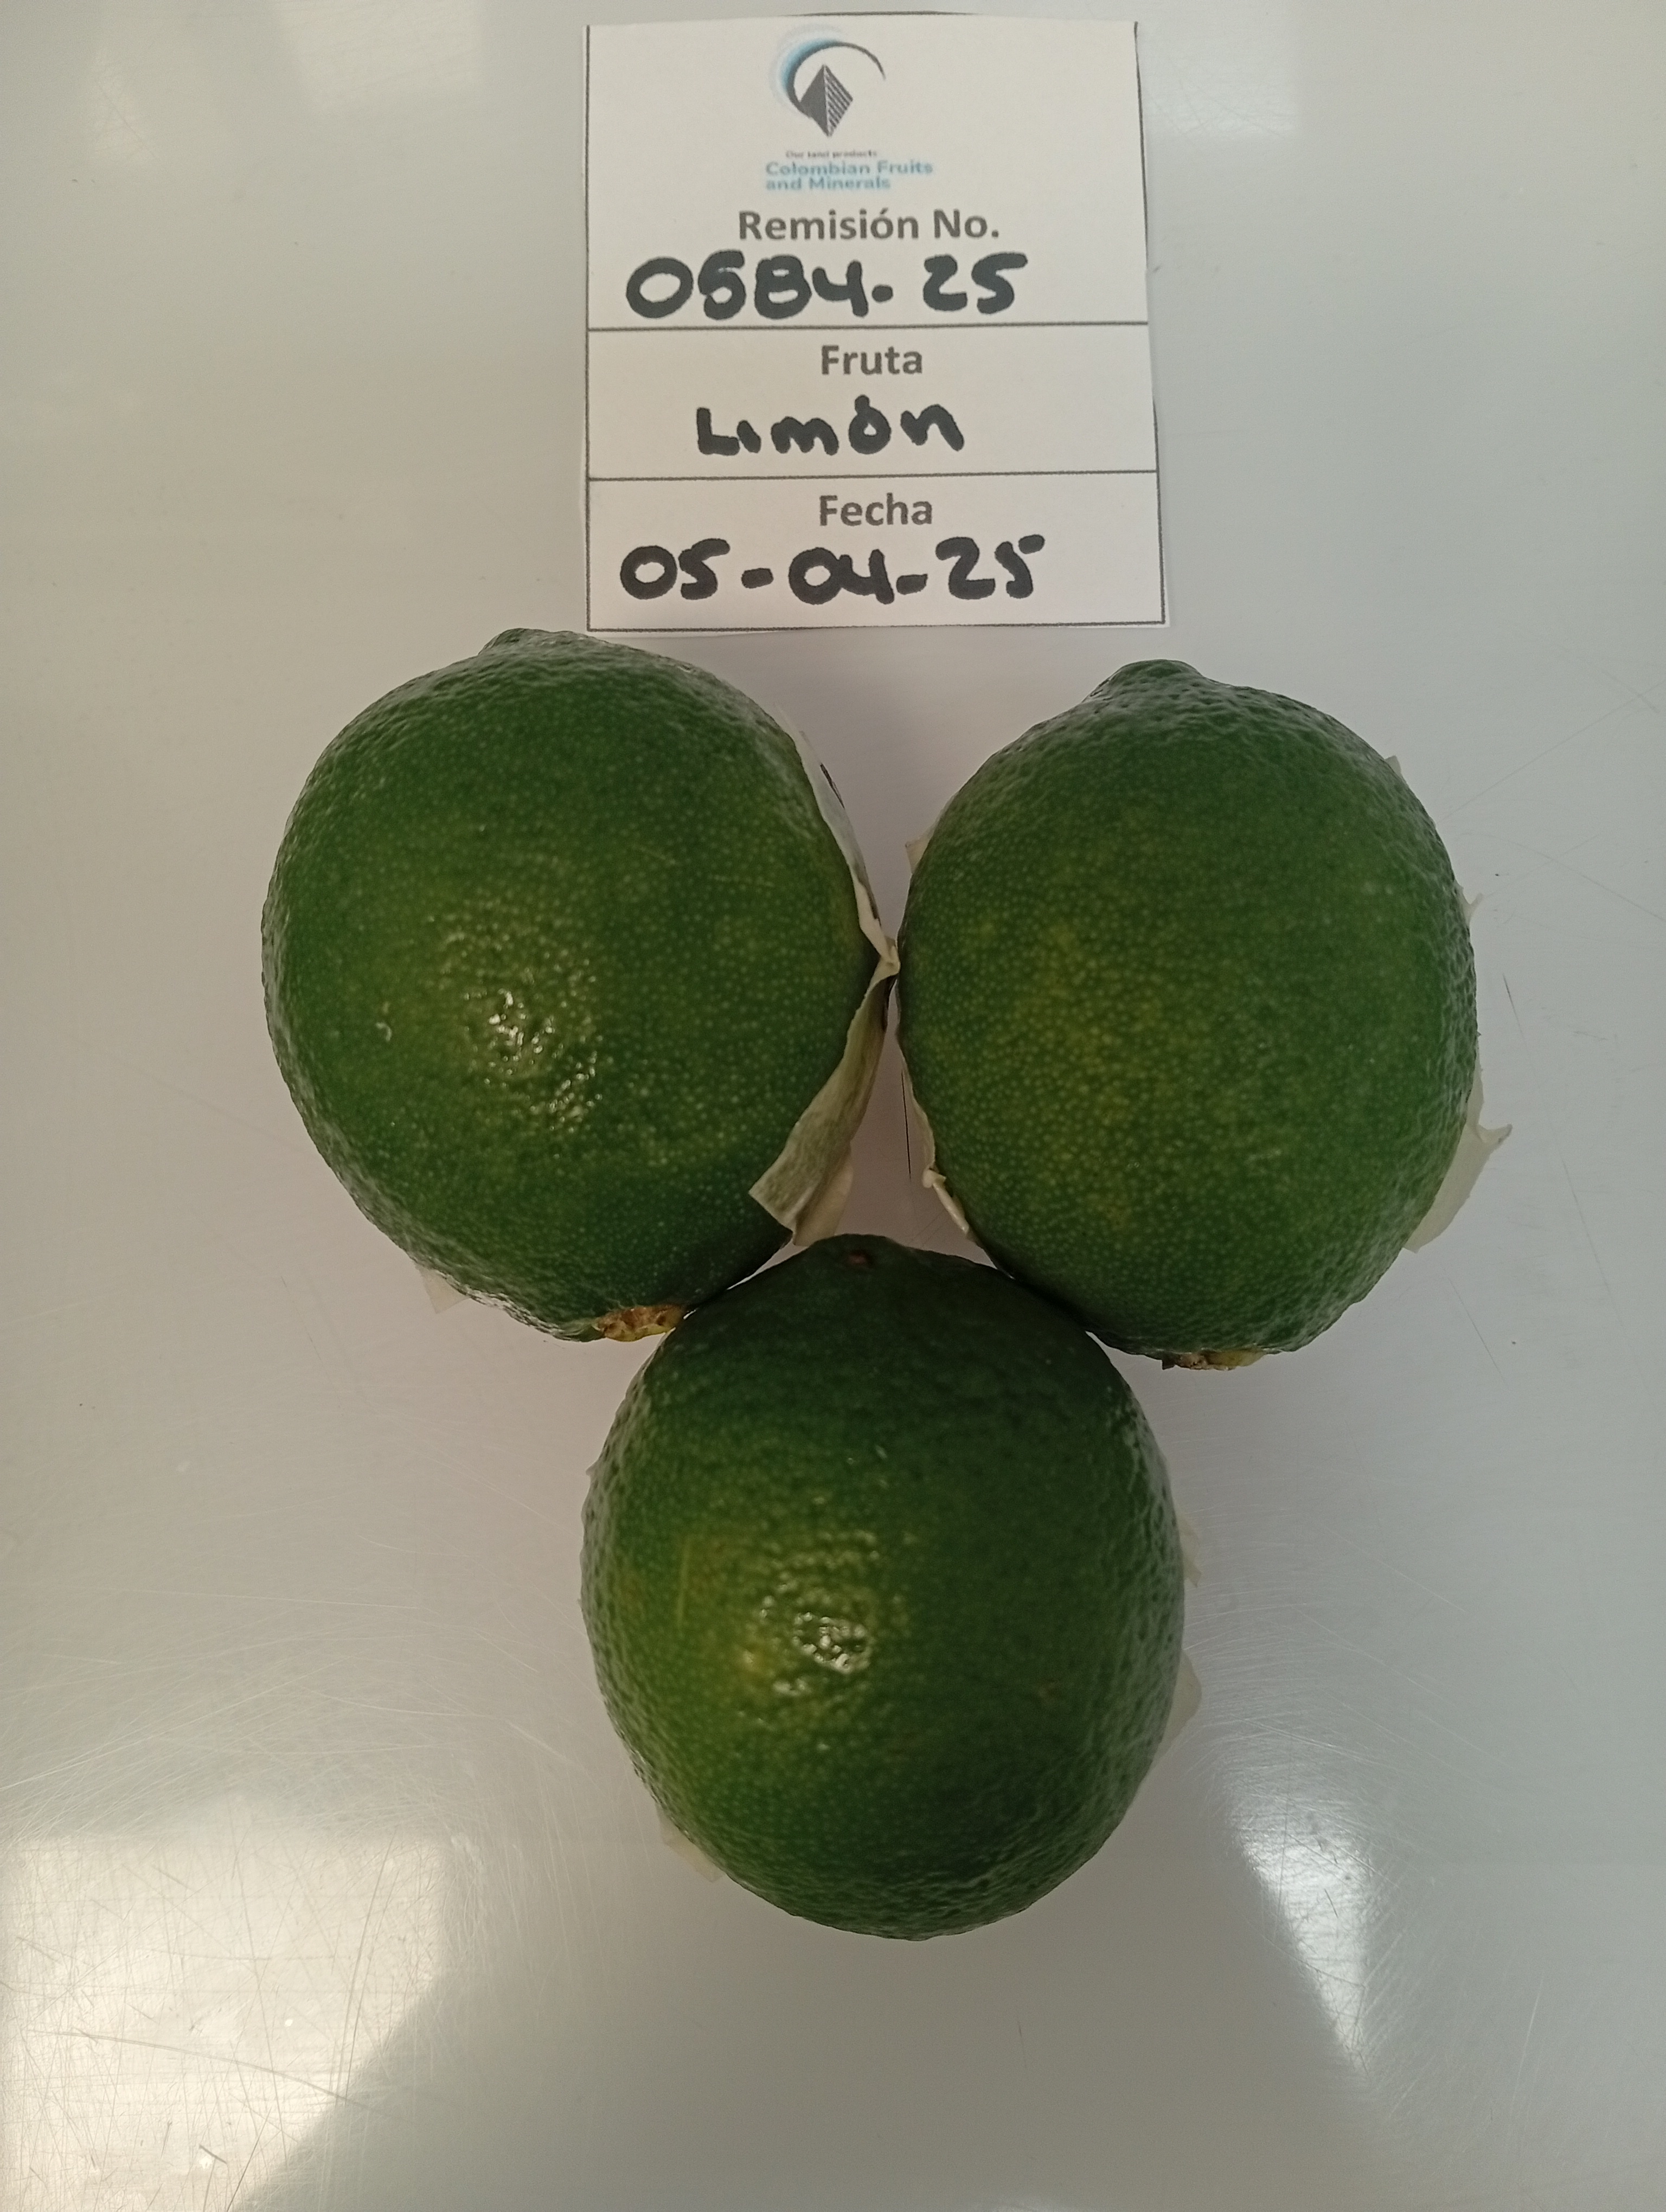 Our land products
Colombian Fruits
and Minerals
Remisión No.
0584-25
Fruta
Limón
Fecha
05-04-25